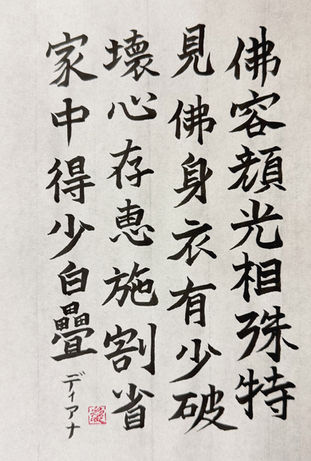 佛容顔光相殊特
見佛身衣有少破
壊心存恵施割省
家中得少白疊
ディアナ